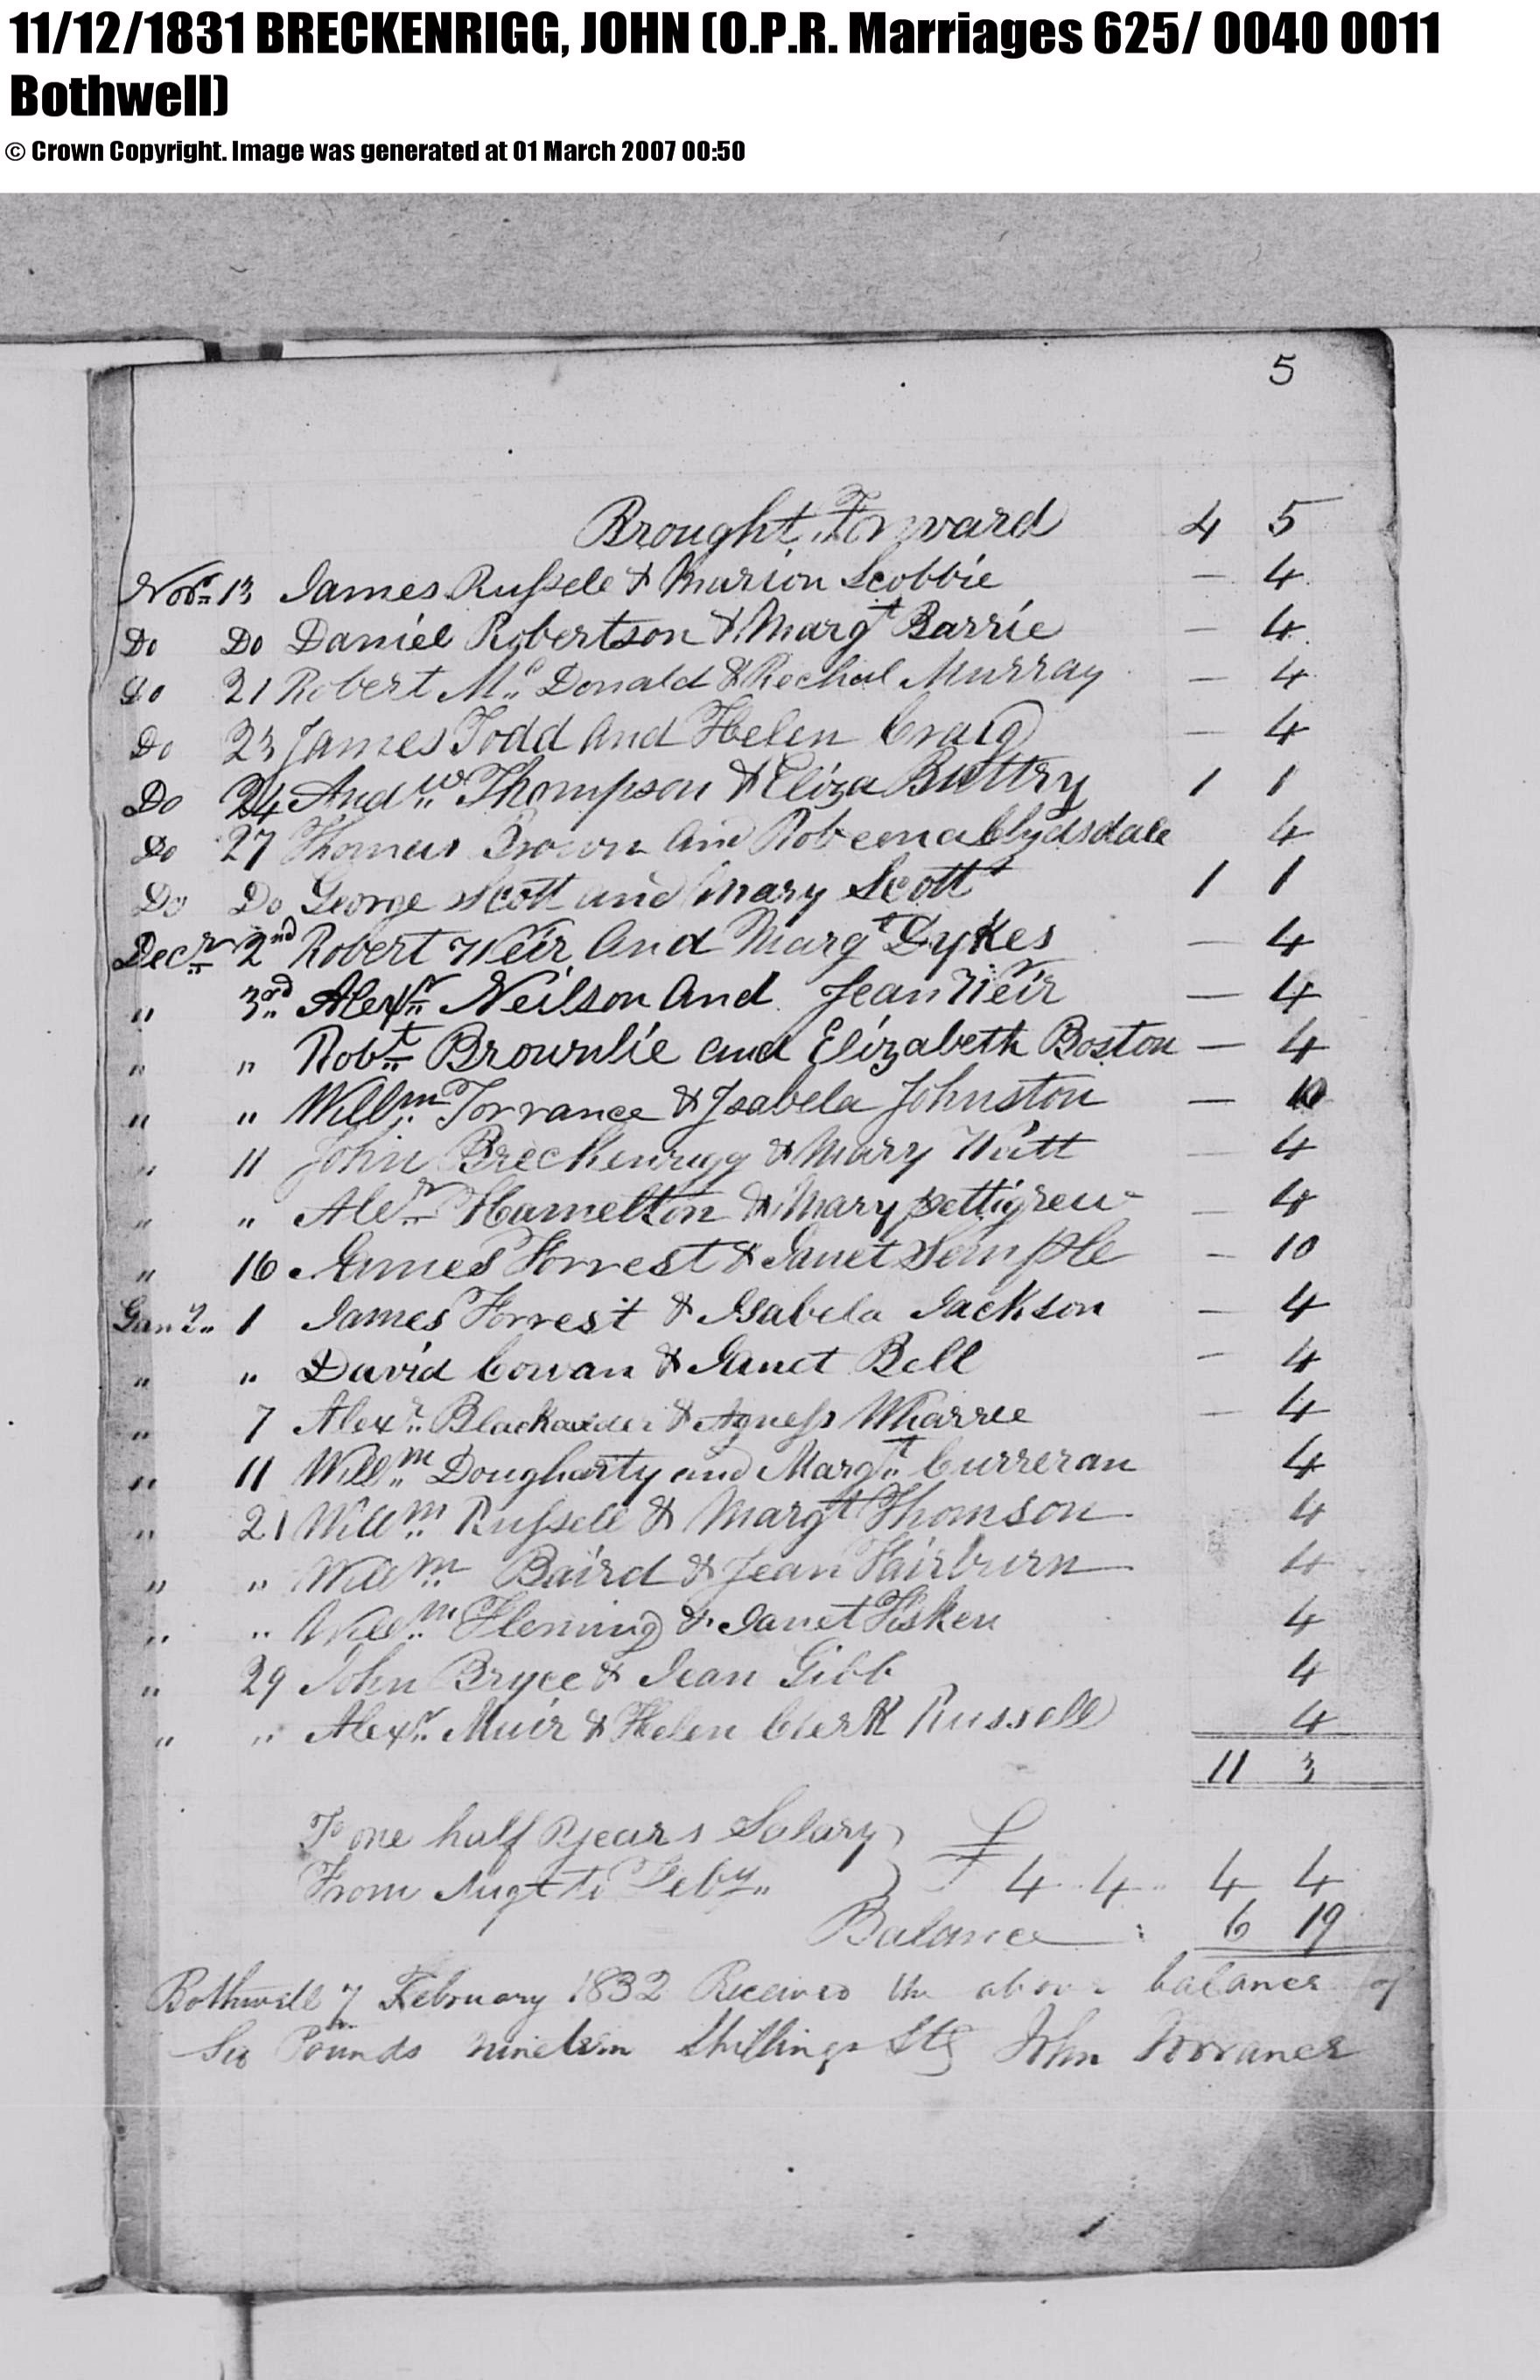 11/12/1831 BRECKENRIGG, JOHN (O.P.R. Marriages 625/ 0040 0011
Bothwell)
© Crown Copyright. Image was generated at 01 March 2007 00:50
5
Brought Forward 4 5
Novr 13 James Russele & Marion Scobbie — 4
Do Do Daniel Robertson & Margt Barrie — 4
do 21 Robert Mc Donald & Rechal Murray — 4
Do 23 James Todd and Helen Craig — 4
Do 24 Andw Thompson & Eliza Buttry 1 1
Do 27 Thomas Brown and Robeena Clydsdale 4
Do Do George Scott and Mary Scott 1 1
Decr 2nd Robert Weir and Margt Dykes — 4
" 3rd Alexr Neilson and Jean Weir — 4
" " Robt Brownlie and Elizabeth Boston — 4
" " Willm Torrance & Isabela Johnston — 10
" 11 John Breckenrigg & Mary Watt — 4
" " Aler Hamelton & Mary pettigrew — 4
" 16 James Forrest & Janet Semple — 10
Jany 1 James Forrest & Isabela Jackson — 4
" " David Cowan & Janet Bell — 4
" 7 Alexr Blackadder & Agness Wharrie — 4
" 11 Willm Dougharty and Margt Curreran 4
" 21 Willm Russell & Margt Thomson 4
" " Willm Baird & Jean Fairburn 4
" " Willm Fleming & Janet Fisken 4
" 29 John Bryce & Jean Gibb 4
" " Alexr Muir & Helen Clerk Russell 4
11 3
To one half years Salary £
From Augt to Feby 4 4 4 4
Balance 6 19
Bothwell 7 February 1832 Received the above balance of
Six Pounds nineteen Shillings Stg John Torrance